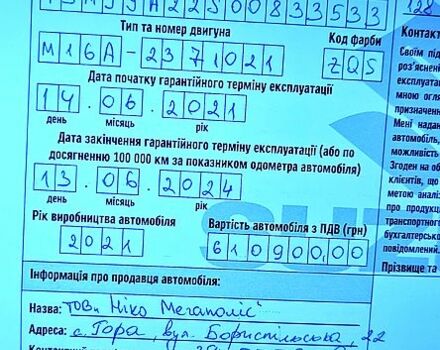 TSMJYA22S00833533
128
Тип та номер двигуна
M16A-2371021
Код фарби
ZQS
Дата початку гарантійного терміну експлуатації
14.06.2021
день місяць рік
Дата закінчення гарантійного терміну експлуатації (або по
досягненню 100 000 км за показником одометра автомобіля)
13.06.2024
день місяць рік
Рік виробництва автомобіля
2021
Вартість автомобіля з ПДВ (грн)
610900,00
Інформація про продавця автомобіля:
Назва: ТОВ "Ніко Мегаполіс"
Адреса: с. Гора, вул. Бориспільська, 22
Контакт
Своїм під
роз'яснені
експлуатац
мною огля
призначенн
Мені надан
автомобіль,
можливість
Згоден на об
клієнтів, що
метою аналіз
про продукц
транспортного
бухгалтерсько
повідомлений.
Прізвище та